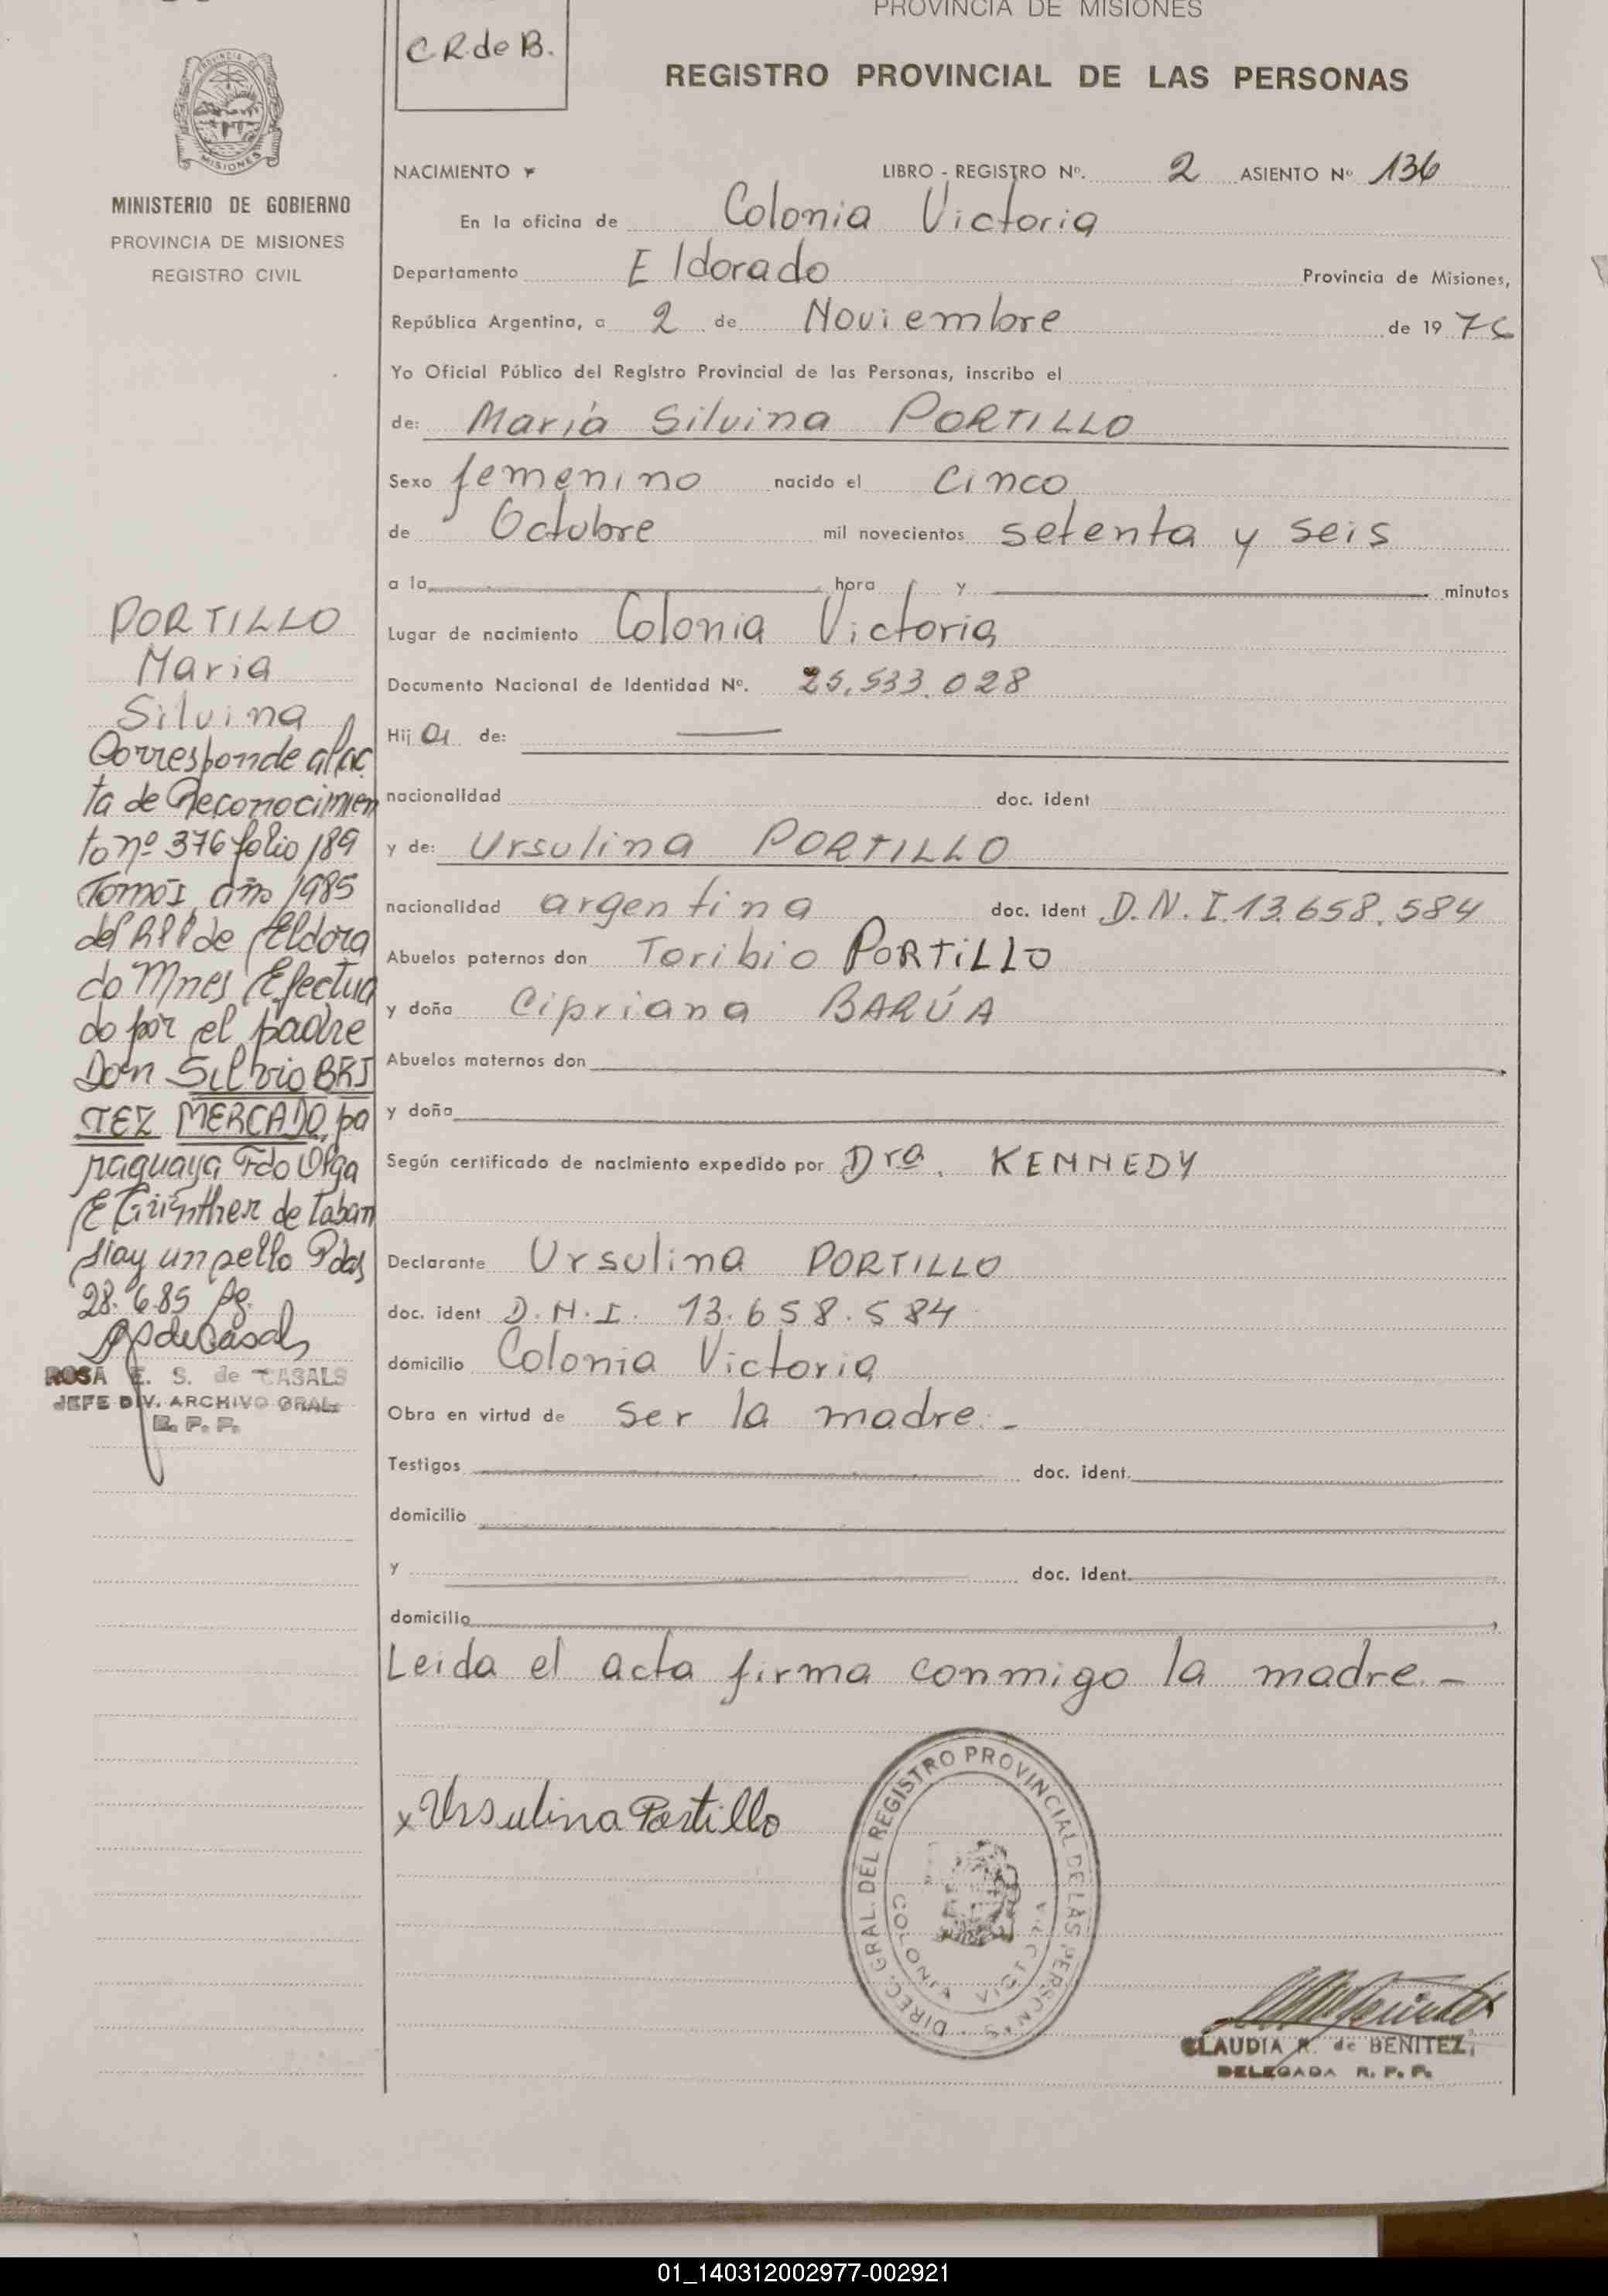 PROVINCIA DE MISIONES
C R de B.
REGISTRO PROVINCIAL DE LAS PERSONAS
MISIONES
MINISTERIO DE GOBIERNO
PROVINCIA DE MISIONES
REGISTRO CIVIL
NACIMIENTO LIBRO - REGISTRO Nº. 2 ASIENTO Nº 136
En la oficina de Colonia Victoria
Departamento Eldorado Provincia de Misiones,
República Argentina, a 2 de Noviembre de 1976
Yo Oficial Público del Registro Provincial de las Personas, inscribo el
de: María Silvina PORTILLO
Sexo femenino nacido el Cinco
de Octubre mil novecientos setenta y seis
a la hora y minutos
Lugar de nacimiento Colonia Victoria
Documento Nacional de Identidad Nº. 25.533.028
Hija de:
nacionalidad doc. ident
y de: Ursulina PORTILLO
nacionalidad argentina doc. ident D.N.I.13.658.584
Abuelos paternos don Toribio PORTiLLO
y doña Cipriana BARÚA
Abuelos maternos don
y doña
Según certificado de nacimiento expedido por Dra. KENNEDY
Declarante Ursulina PORTILLO
doc. ident D.N.I. 13.658.584
domicilio Colonia Victoria
Obra en virtud de ser la madre.-
Testigos doc. ident.
domicilio
y doc. ident.
domicilio
Leida el acta firma conmigo la madre.-
x Ursulina Portillo
DIREC. GRAL. DEL REGISTRO PROVINCIAL DE LAS PERSONAS
COLONIA VICTORIA
CLAUDIA R. de BENITEZ
DELEGADA R. P. P.
PORTILLO
Maria
Silvina
Corresponde al ac
ta de Reconocimien
to nº 376 folio 189
Tomo I, año 1985
del RPP de Eldora
do Mnes Efectua
do por el padre
Don Silvio BRI
TEZ MERCADO, pa
raguaya Fdo Olga
E Günther de Taban
Hay un sello Pdas
28.6.85
ROSA E. S. de CASALS
JEFE DIV. ARCHIVO GRAL.
R. P. P.
01_140312002977-002921